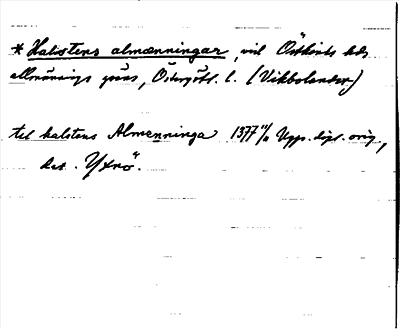 * Halstens almænningar, vid Östkinds hds
allmännings gräns, Östergötl. l. (Vikbolandet.)
til halstens Almenninga 1377 Upp. dipl. orig,
det. Yxnö.